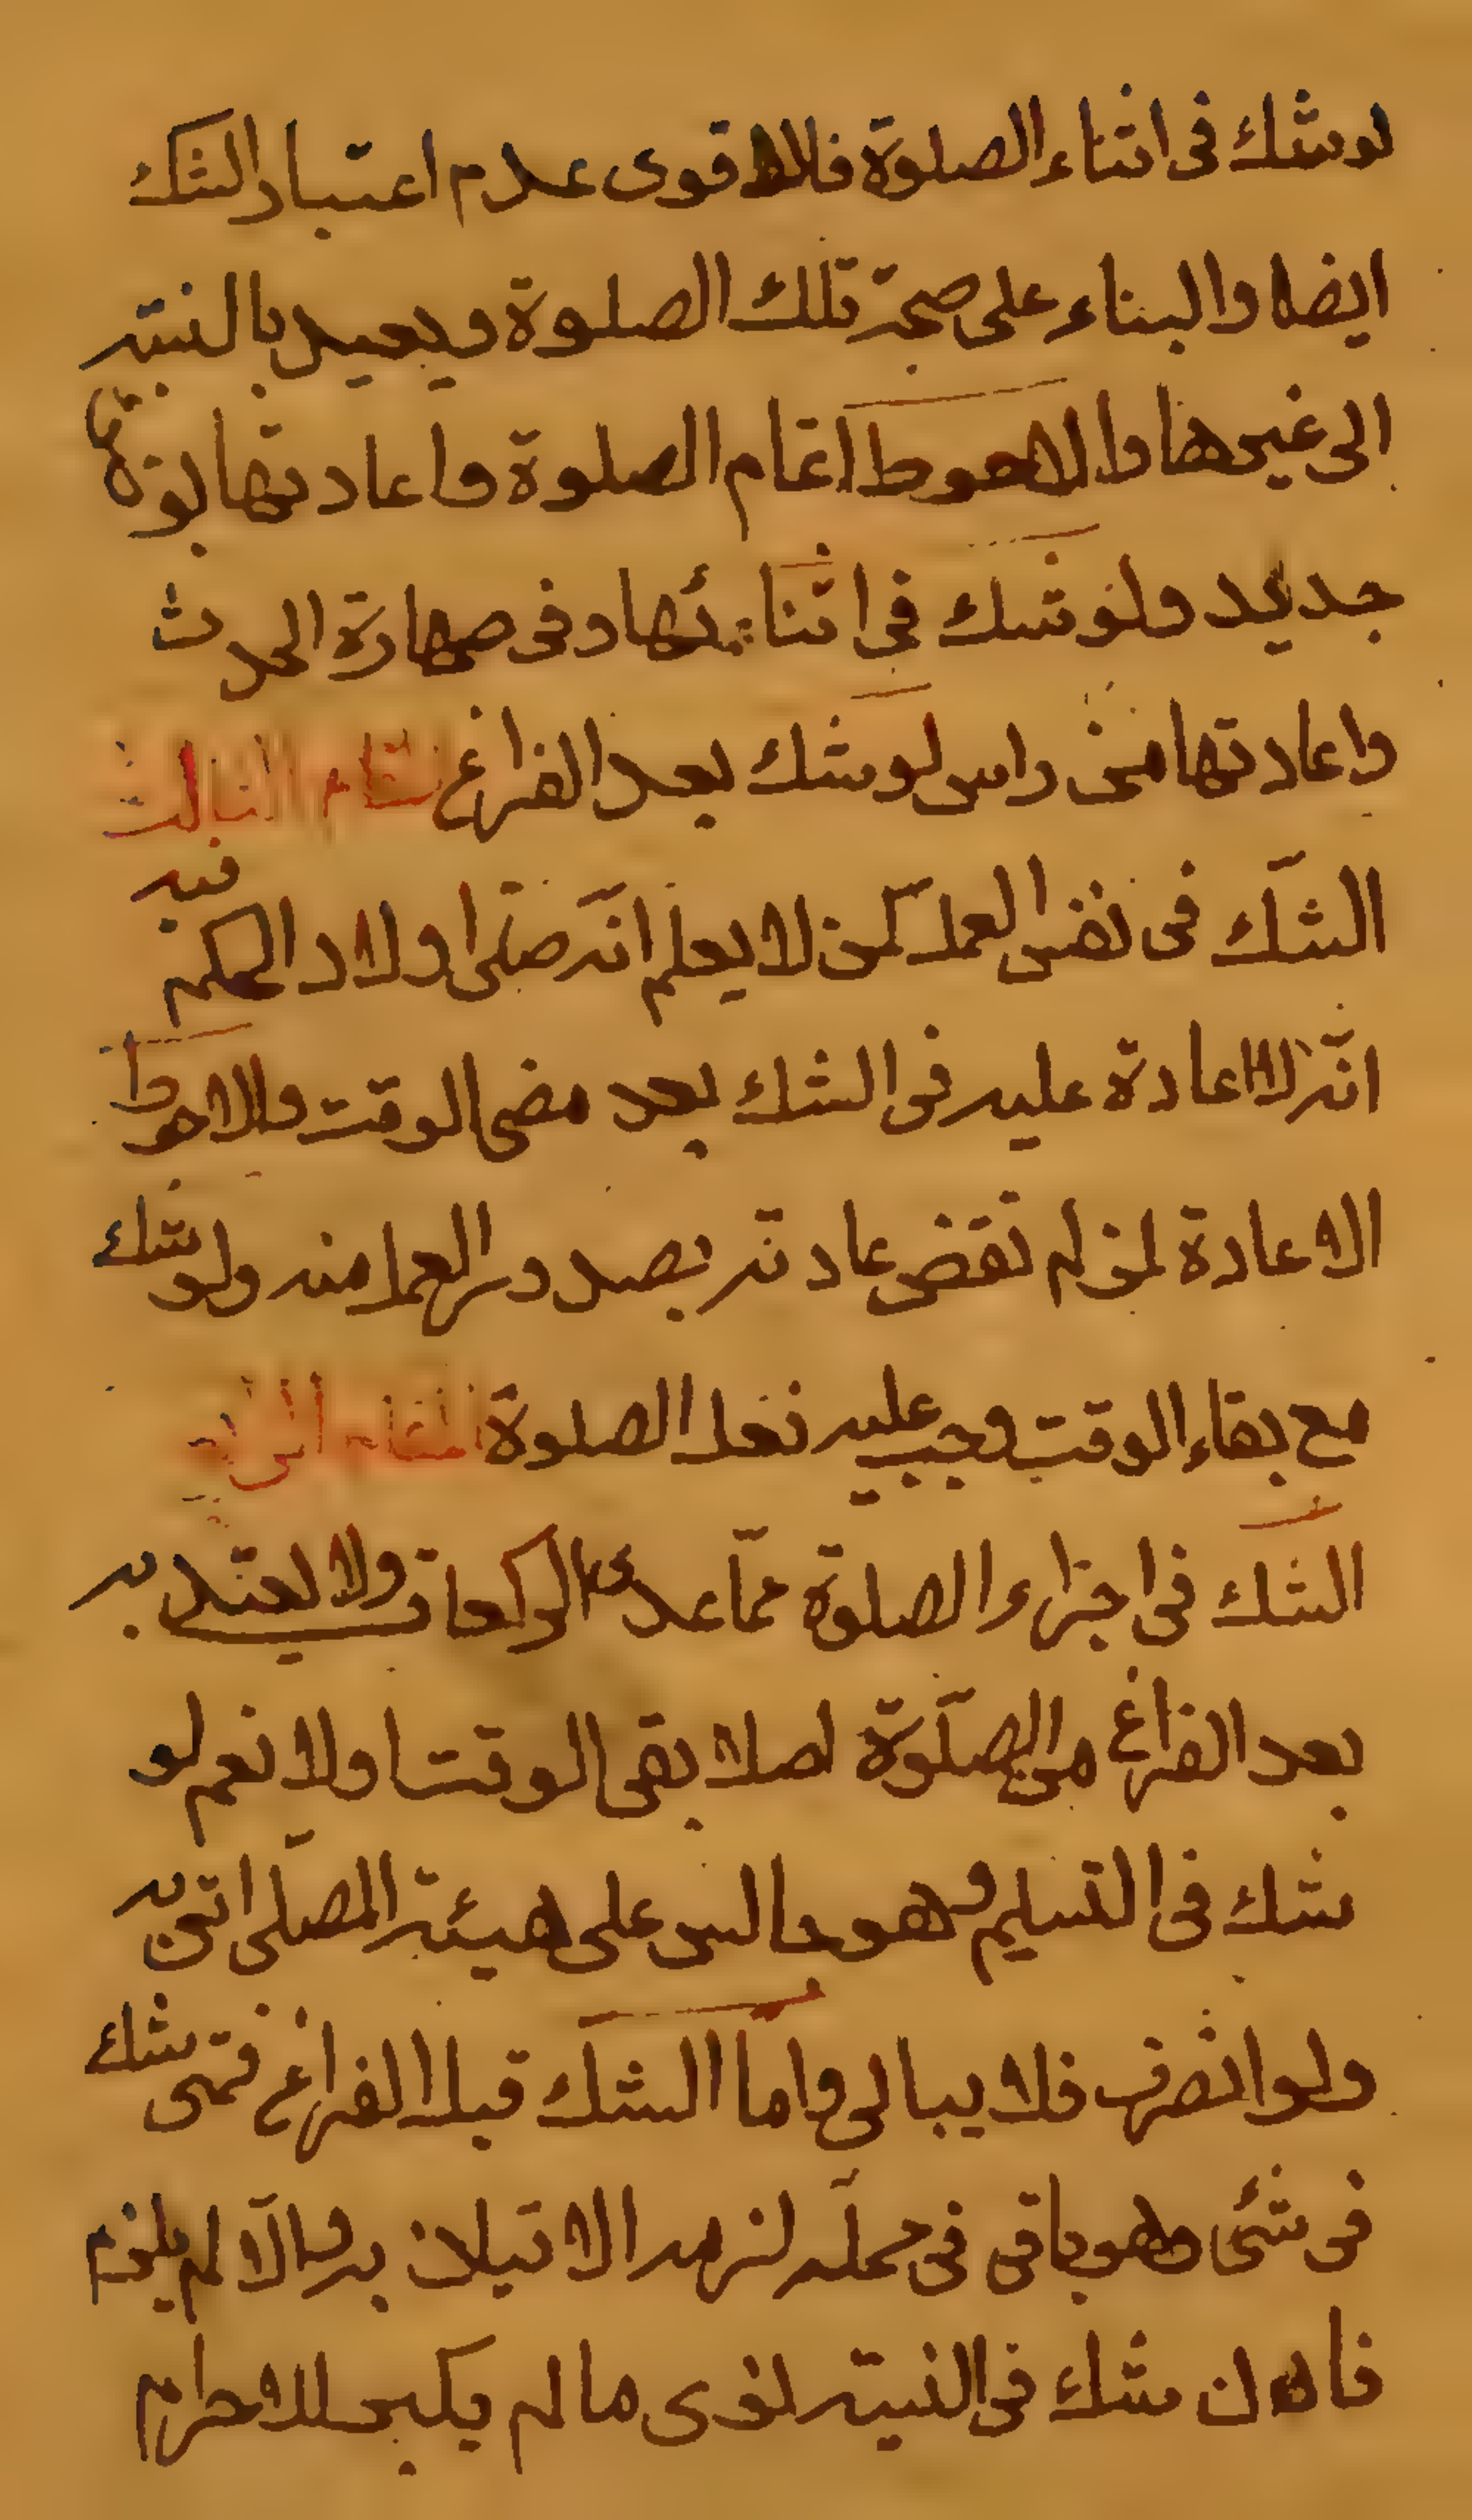 لو شك فى اثناء الصلوة فالاقوى عدم اعتبار الشك
ايضا والبناء على صحة تلك الصلوة ويعيد بالنسبة
الى غيرها والاحوط اتمام الصلوة واعادتها
جديد ولو شك فى اثنائها فى طهارة الحدث
واعادتها من راس لو شك بعد الفراغ
الشك فى نفس العمل كمن لا يعلم انه صلى او لا والحكم فيه
انه لا اعادة عليه فى الشك بعد مضى الوقت والاحوط
الاعادة لمن لم تقض عادته بصدور العمل منه ولو شك
مع بقاء الوقت وجب عليه فعل الصلوة
الشك فى اجزاء الصلوة مما عدى الركعات ولا يعتد به
بعد الفراغ من الصلوة اصلا بقى الوقت او لا نعم لو
شك فى التسليم وهو جالس على هيئة المصلى اتى به
ولو انصرف فلا يبالى واما الشك قبل الفراغ فمتى شك
فى شئ وهو باقى فى محله لزمه الاتيان به والا لم يلزم
فان شك فى النية نوى ما لم يكبر للاحرام